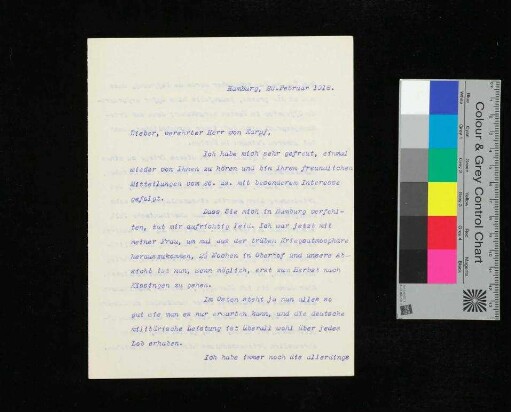 Hamburg, 26.Februar 1918.
Lieber, verehrter Herr von Kurpf,
Ich habe mich sehr gefreut, einmal
wieder von Ihnen zu hören und bin Ihren freundlichen
Mitteilungen vom ds. mit besonderem Interesse
gefolgt.
Dass Sie mich in Hamburg verfehl-
ten, tut mir aufrichtig leid. Ich war jetzt mit
meiner Frau, um mal aus der trüben Kriegsatmosphäre
herauszukommen, 2½ Wochen in Oberhof und unsere Ab-
sicht ist nun, wenn möglich, erst zum Herbst nach
Kissingen zu gehen.
Im Osten steht ja nun alles so
gut wie man es nur erwarten kann, und die deutsche
militärische Leistung ist überall wohl über jedes
Lob erhaben.
Ich habe immer noch die allerdings
Colour & Grey Control Chart
White
Blue
Grey 1
Cyan
Grey 2
Green
Grey 3
Yellow
Grey 4
Red
Black
Magenta